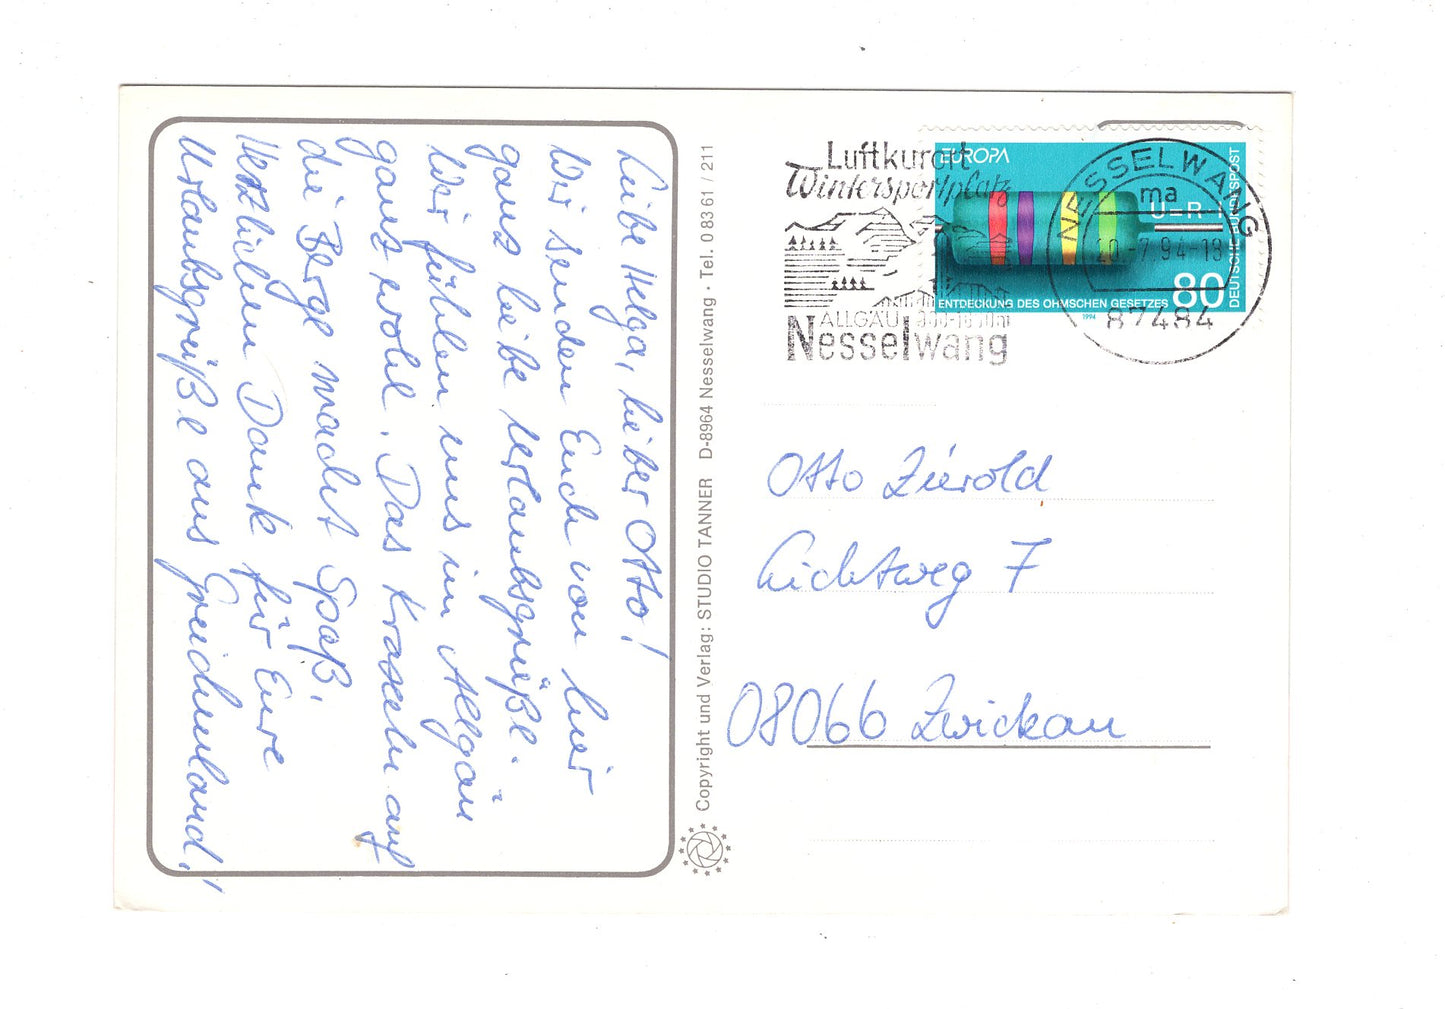 Liebe Helga, lieber Otto!
Wir senden Euch von hier
ganz liebe Urlaubsgrüße.
Wir fühlen uns im Allgäu
ganz wohl. Das Kraxeln auf
die Berge macht Spaß.
Herzlichen Dank für Eure
Urlaubsgrüße aus Griechenland!
Copyright und Verlag: STUDIO TANNER D-8964 Nesselwang · Tel. 0 83 61 / 211
Luftkurort
Wintersportplatz
ALLGÄU 900-1600m
Nesselwang
EUROPA
U=R·I
ENTDECKUNG DES OHMSCHEN GESETZES
80
1994
DEUTSCHE BUNDESPOST
NESSELWANG
ma
20.-7.94-18
87484
Otto Zierold
Lichtweg 7
08066 Zwickau